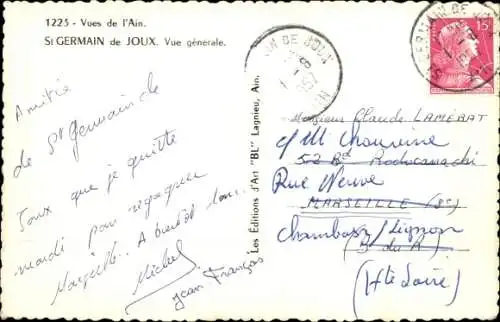 1225 - Vues de l'Ain.
St GERMAIN de JOUX. Vue générale.
Amitié
de St Germain de
Joux que je quitte
mardi pour regagner
Marseille. A bientôt
Michel
Jean François
Les Éditions d'Art "BL" Lagnieu, Ain.
15F
Monsieur Claude LAMERAT
c/ M Chouvine
52 Bd Rodocanachi
Rue Neuve
MARSEILLE (8e)
Chambon s/ Lignon
(B du R)
(Hte Loire)